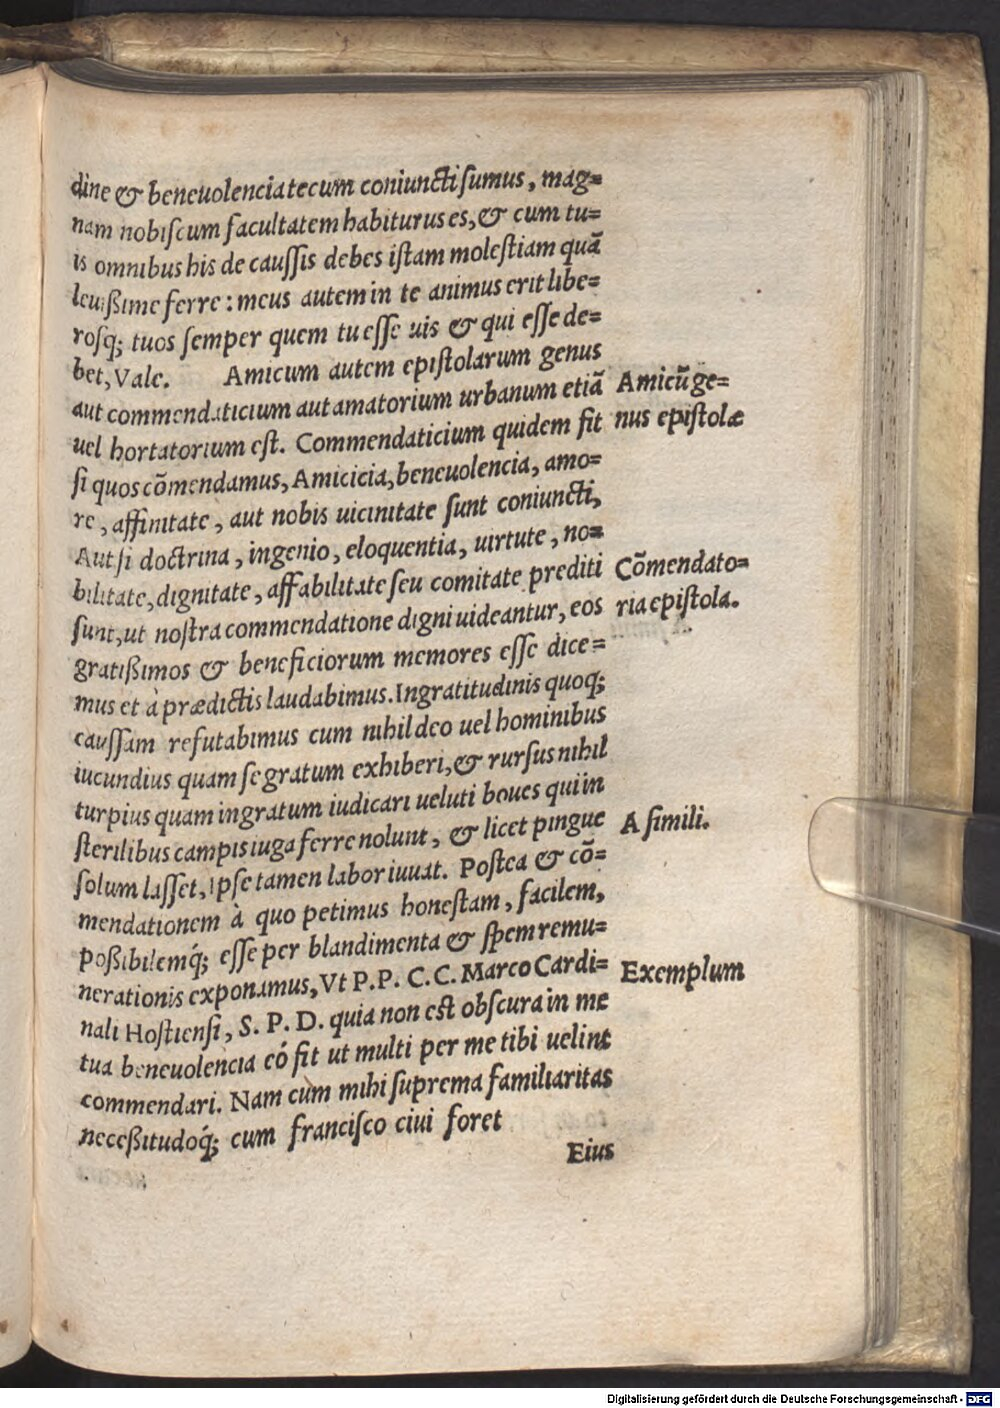 dine & beneuolencia tecum coniuncti sumus, mag=
nam nobiscum facultatem habiturus es, & cum tu=
is omnibus his de caussis debes istam molestiam quã
leuißime ferre: meus autem in te animus erit libe=
rosq; tuos semper quem tu esse uis & qui esse de=
bet, Vale. Amicum autem epistolarum genus
aut commendaticium aut amatorium urbanum etiã
uel hortatorium est. Commendaticium quidem fit
si quos cõmendamus, Amicicia, beneuolencia, amo=
re, affinitate, aut nobis uicinitate sunt coniuncti,
Aut si doctrina, ingenio, eloquentia, uirtute, no=
bilitate, dignitate, affabilitate seu comitate prediti
sunt, ut nostra commendatione digni uideantur, eos
gratißimos & beneficiorum memores esse dice=
mus et à prædictis laudabimus. Ingratitudinis quoq;
caussam refutabimus cum nihil deo uel hominibus
iucundius quam se gratum exhiberi, & rursus nihil
turpius quam ingratum iudicari ueluti boues qui in
sterilibus campis iuga ferre nolunt, & licet pingue
solum lasset, Ipse tamen labor iuuat. Postea & cõ=
mendationem à quo petimus honestam, facilem,
poßibilemq́; esse per blandimenta & spem remu=
nerationis exponamus, Vt P.P. C.C. Marco Cardi=
nali Hostiensi, S. P. D. quia non est obscura in me
tua beneuolencia eó fit ut multi per me tibi uelint
commendari. Nam cùm mihi suprema familiaritas
neceßitudoq́; cum francisco ciui foret
Eius
Amicũ ge=
nus epistolæ
Cõmendato=
ria epistola.
A simili.
Exemplum
Digitalisierung gefördert durch die Deutsche Forschungsgemeinschaft - DFG